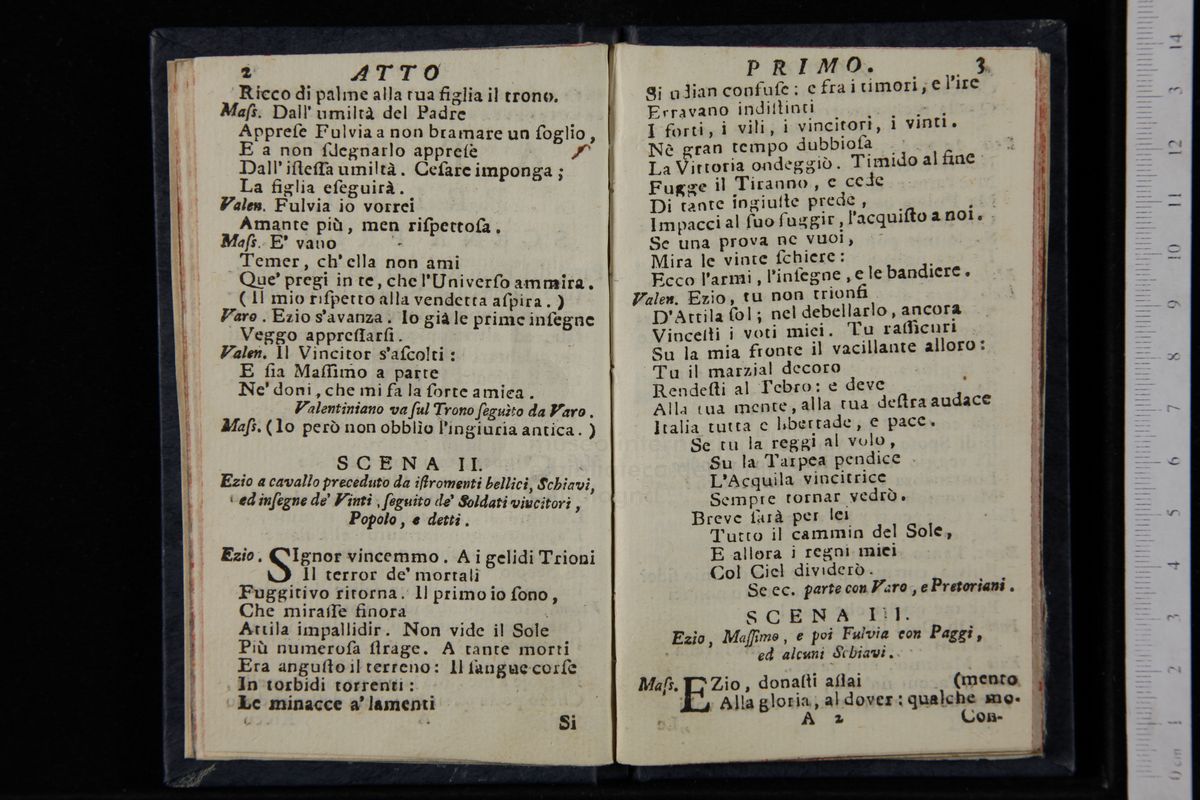 2 ATTO
Ricco di palme alla tua figlia il trono.
Maſs. Dall' umiltà del Padre
Appreſe Fulvia a non bramare un ſoglio,
E a non ſdegnarlo appreſe
Dall' iſteſſa umiltà. Ceſare imponga;
La figlia eſeguirà.
Valen. Fulvia io vorrei
Amante più, men riſpettoſa.
Maſs. E' vano
Temer, ch' ella non ami
Que' pregi in te, che l'Univerſo ammira.
(Il mio riſpetto alla vendetta aſpira.)
Varo. Ezio s'avanza. Io già le prime inſegne
Veggo appreſſarſi.
Valen. Il Vincitor s'aſcolti:
E ſia Maſſimo a parte
Ne' doni, che mi fa la ſorte amica.
Valentiniano va ſul Trono ſeguito da Varo.
Maſs. (Io però non obblìo l'ingiuria antica.)
SCENA II.
Ezio a cavallo preceduto da iſtromenti bellici, Schiavi,
ed inſegne de' Vinti, ſeguito de' Soldati viucitori,
Popolo, e detti.
Ezio. SIgnor vincemmo. A i gelidi Trioni
Il terror de' mortali
Fuggitivo ritorna. Il primo io ſono,
Che miraſſe finora
Attila impallidir. Non vide il Sole
Più numeroſa ſtrage. A tante morti
Era anguſto il terreno: Il ſangue corſe
In torbidi torrenti:
Le minacce a' lamenti
Si
PRIMO. 3
Si udian confuſe: e fra i timori, e l'ire
Erravano indiſtinti
I forti, i vili, i vincitori, i vinti.
Nè gran tempo dubbioſa
La Vittoria ondeggiò. Timido al fine
Fugge il Tiranno, e cede
Di tante ingiuſte prede,
Impacci al ſuo fuggir, l'acquiſto a noi.
Se una prova ne vuoi,
Mira le vinte ſchiere:
Ecco l'armi, l'inſegne, e le bandiere.
Valen. Ezio, tu non trionfi
D'Attila ſol; nel debellarlo, ancora
Vinceſti i voti miei. Tu raſſicuri
Su la mia fronte il vacillante alloro:
Tu il marzial decoro
Rendeſti al Tebro: e deve
Alla tua mente, alla tua deſtra audace
Italia tutta e libertade, e pace.
Se tu la reggi al volo,
Su la Tarpea pendice
L'Acquila vincitrice
Sempre tornar vedrò.
Breve ſarà per lei
Tutto il cammin del Sole,
E allora i regni miei
Col Ciel dividerò.
Se ec. parte con Varo, e Pretoriani.
SCENA III.
Ezio, Maſſimo, e poi Fulvia con Paggi,
ed alcuni Schiavi.
Maſs. EZio, donaſti aſſai (mento
Alla gloria, al dover: qualche mo-
A 2 Con-